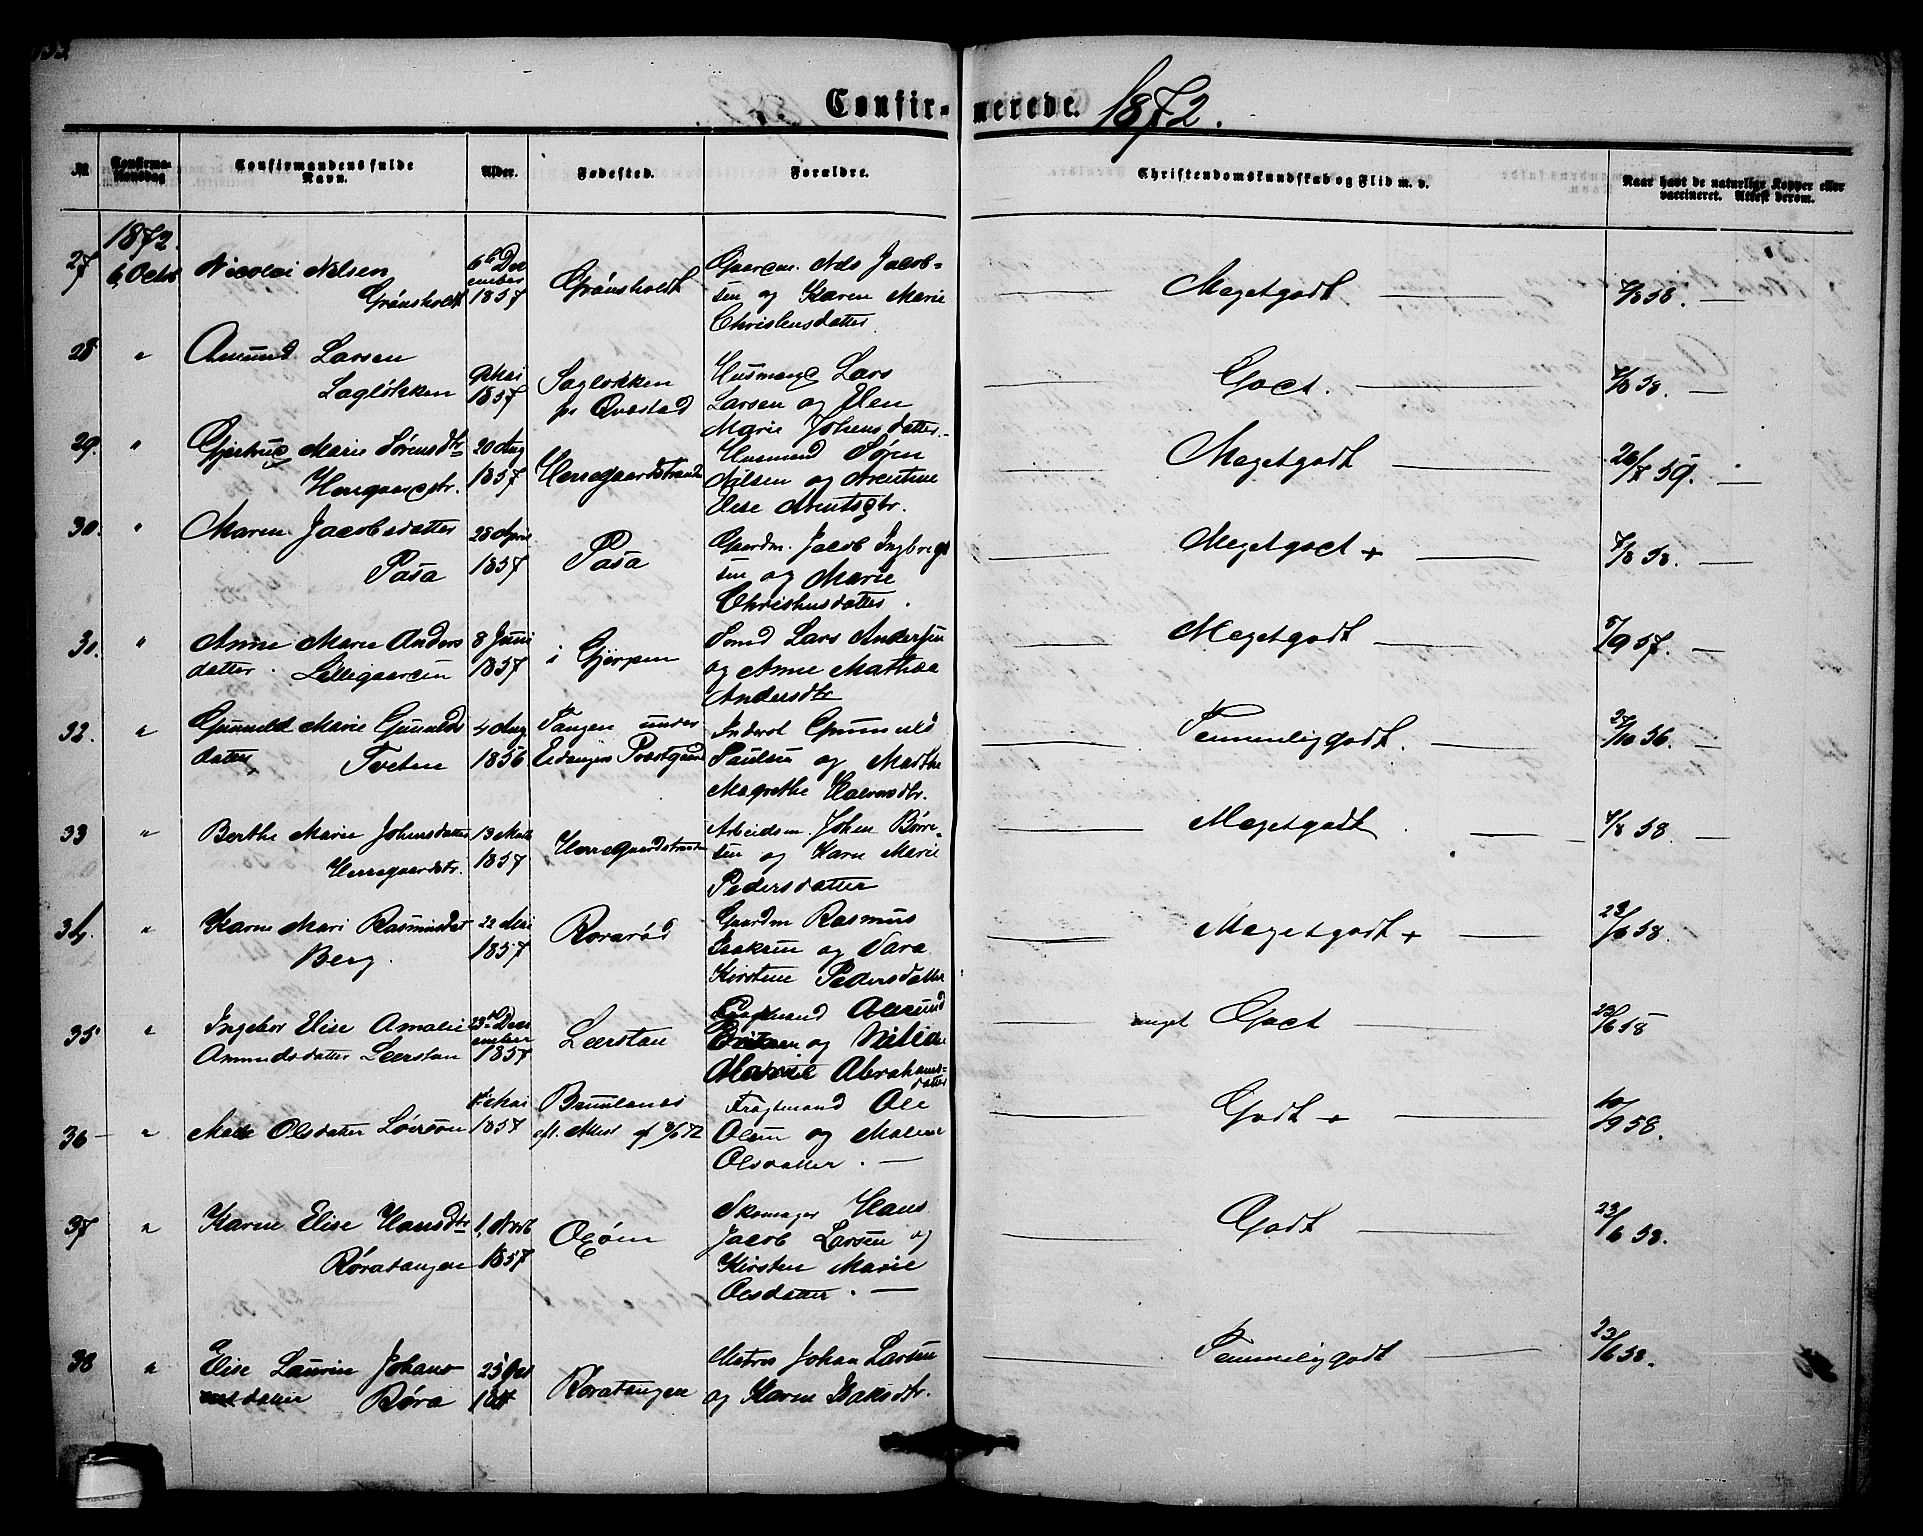 Confirmerede. 1872.
№ Confirmationsdag Confirmandens fulde Navn. Alder. Fødested. Forældre. Christendomskundskab og Flid m. v. Naar havt de naturlige Kopper eller vaccineret. Attest derom.
1872.
27 6, Octob Nicolai Nilsen Grönsholdt 6te December 1857 Grönsholdt Gaardm. Nils Jacobsen og Karen Marie Christensdatter Megetgodt 7/8 58.
28 " Amund Larsen Saglökken 9 Mai 1857 Saglökken pr Qvestad Husmand Lars Larsen og Elen Marie Johensdatter Godt. 7/8 58.
29. " Gjertrud Marie Sörensdtr Herregaardstr. 20 Aug 1857 Herregaardstranden Husmand Søren Nilsen og Arentine Elise Arntsdtr. Megetgodt 20/7 59.
30. " Maren Jacobsdatter Pasa 28 April 1857 Pasa Gaardm. Jacob Ingbregtsen og Marie Christensdatter. Megetgodt + 7/8 58.
31. " Anne Marie Andersdatter. Lillegaarden 8 Juni 1857 i Gjerpen Smed Lars Andersen og Anne Mathea Andersdtr Megetgodt 5/9 57.
32. " Gunnild Marie Gunnildsdatter Tveten 4 Aug 1856 Tangen under Eidanger Præstgaard Inderst Gunnuld Paulsen og Marthe Magrethe Halvorsdtr. Temmeliggodt. 27/10 56.
33 " Berthe Marie Johensdatter Herregaardstr. 13 Marts 1857 Herregaardstranden Arbeidsm. Johen Børresen og Karen Marie Pedersdatter Megetgodt. 7/8 58
34. " Karen Mari Rasmusdat Berg. 22 Mai 1857 Roraröd Gaardm Rasmus Isaksen og Sara Kirstine Pedersdatter Megetgodt + 23/6 58.
35 " Ingebor Elise Amalie Amundsdatter Leerstan 23de December 1857 Leerstan Amund og Abrahamsdatter meget Godt 23/6 58
36 " Olsdatter 1ste Mai 1857 Brunlanes Attest af 3/6 72 Fragtmand Ole Olsen og Malene Olsdatter. Godt + 10/9 58.
37 " Karen Elise Hansdtr Røratangen 1, Novb 1857 Skomager Hans Jacob Larsen og Kirsten Marie Olsdatter. Godt 23/6 58.
38 " Elise Laurine Johansdatter Røra 25 Roratangen Matros Johan Larsen og Karen Isaksdtr. Temmeliggodt 23/6 58.